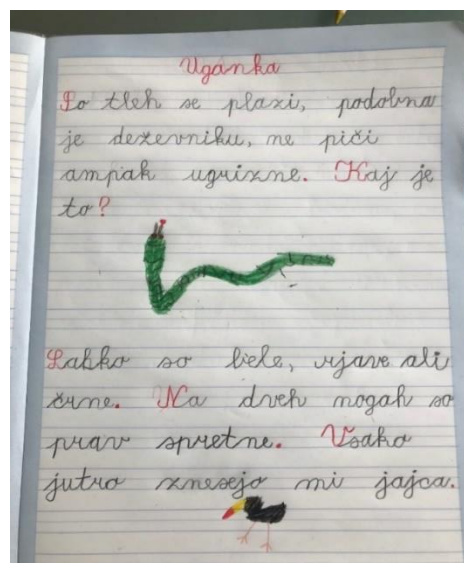 Uganka
Po tleh se plazi, podobna
je deževniku, ne piči
ampak ugrizne. Kaj je
to?
Lahko so bele, rjave ali
črne. Na dveh nogah so
prav spretne. Vsako
jutro znesejo mi jajca.